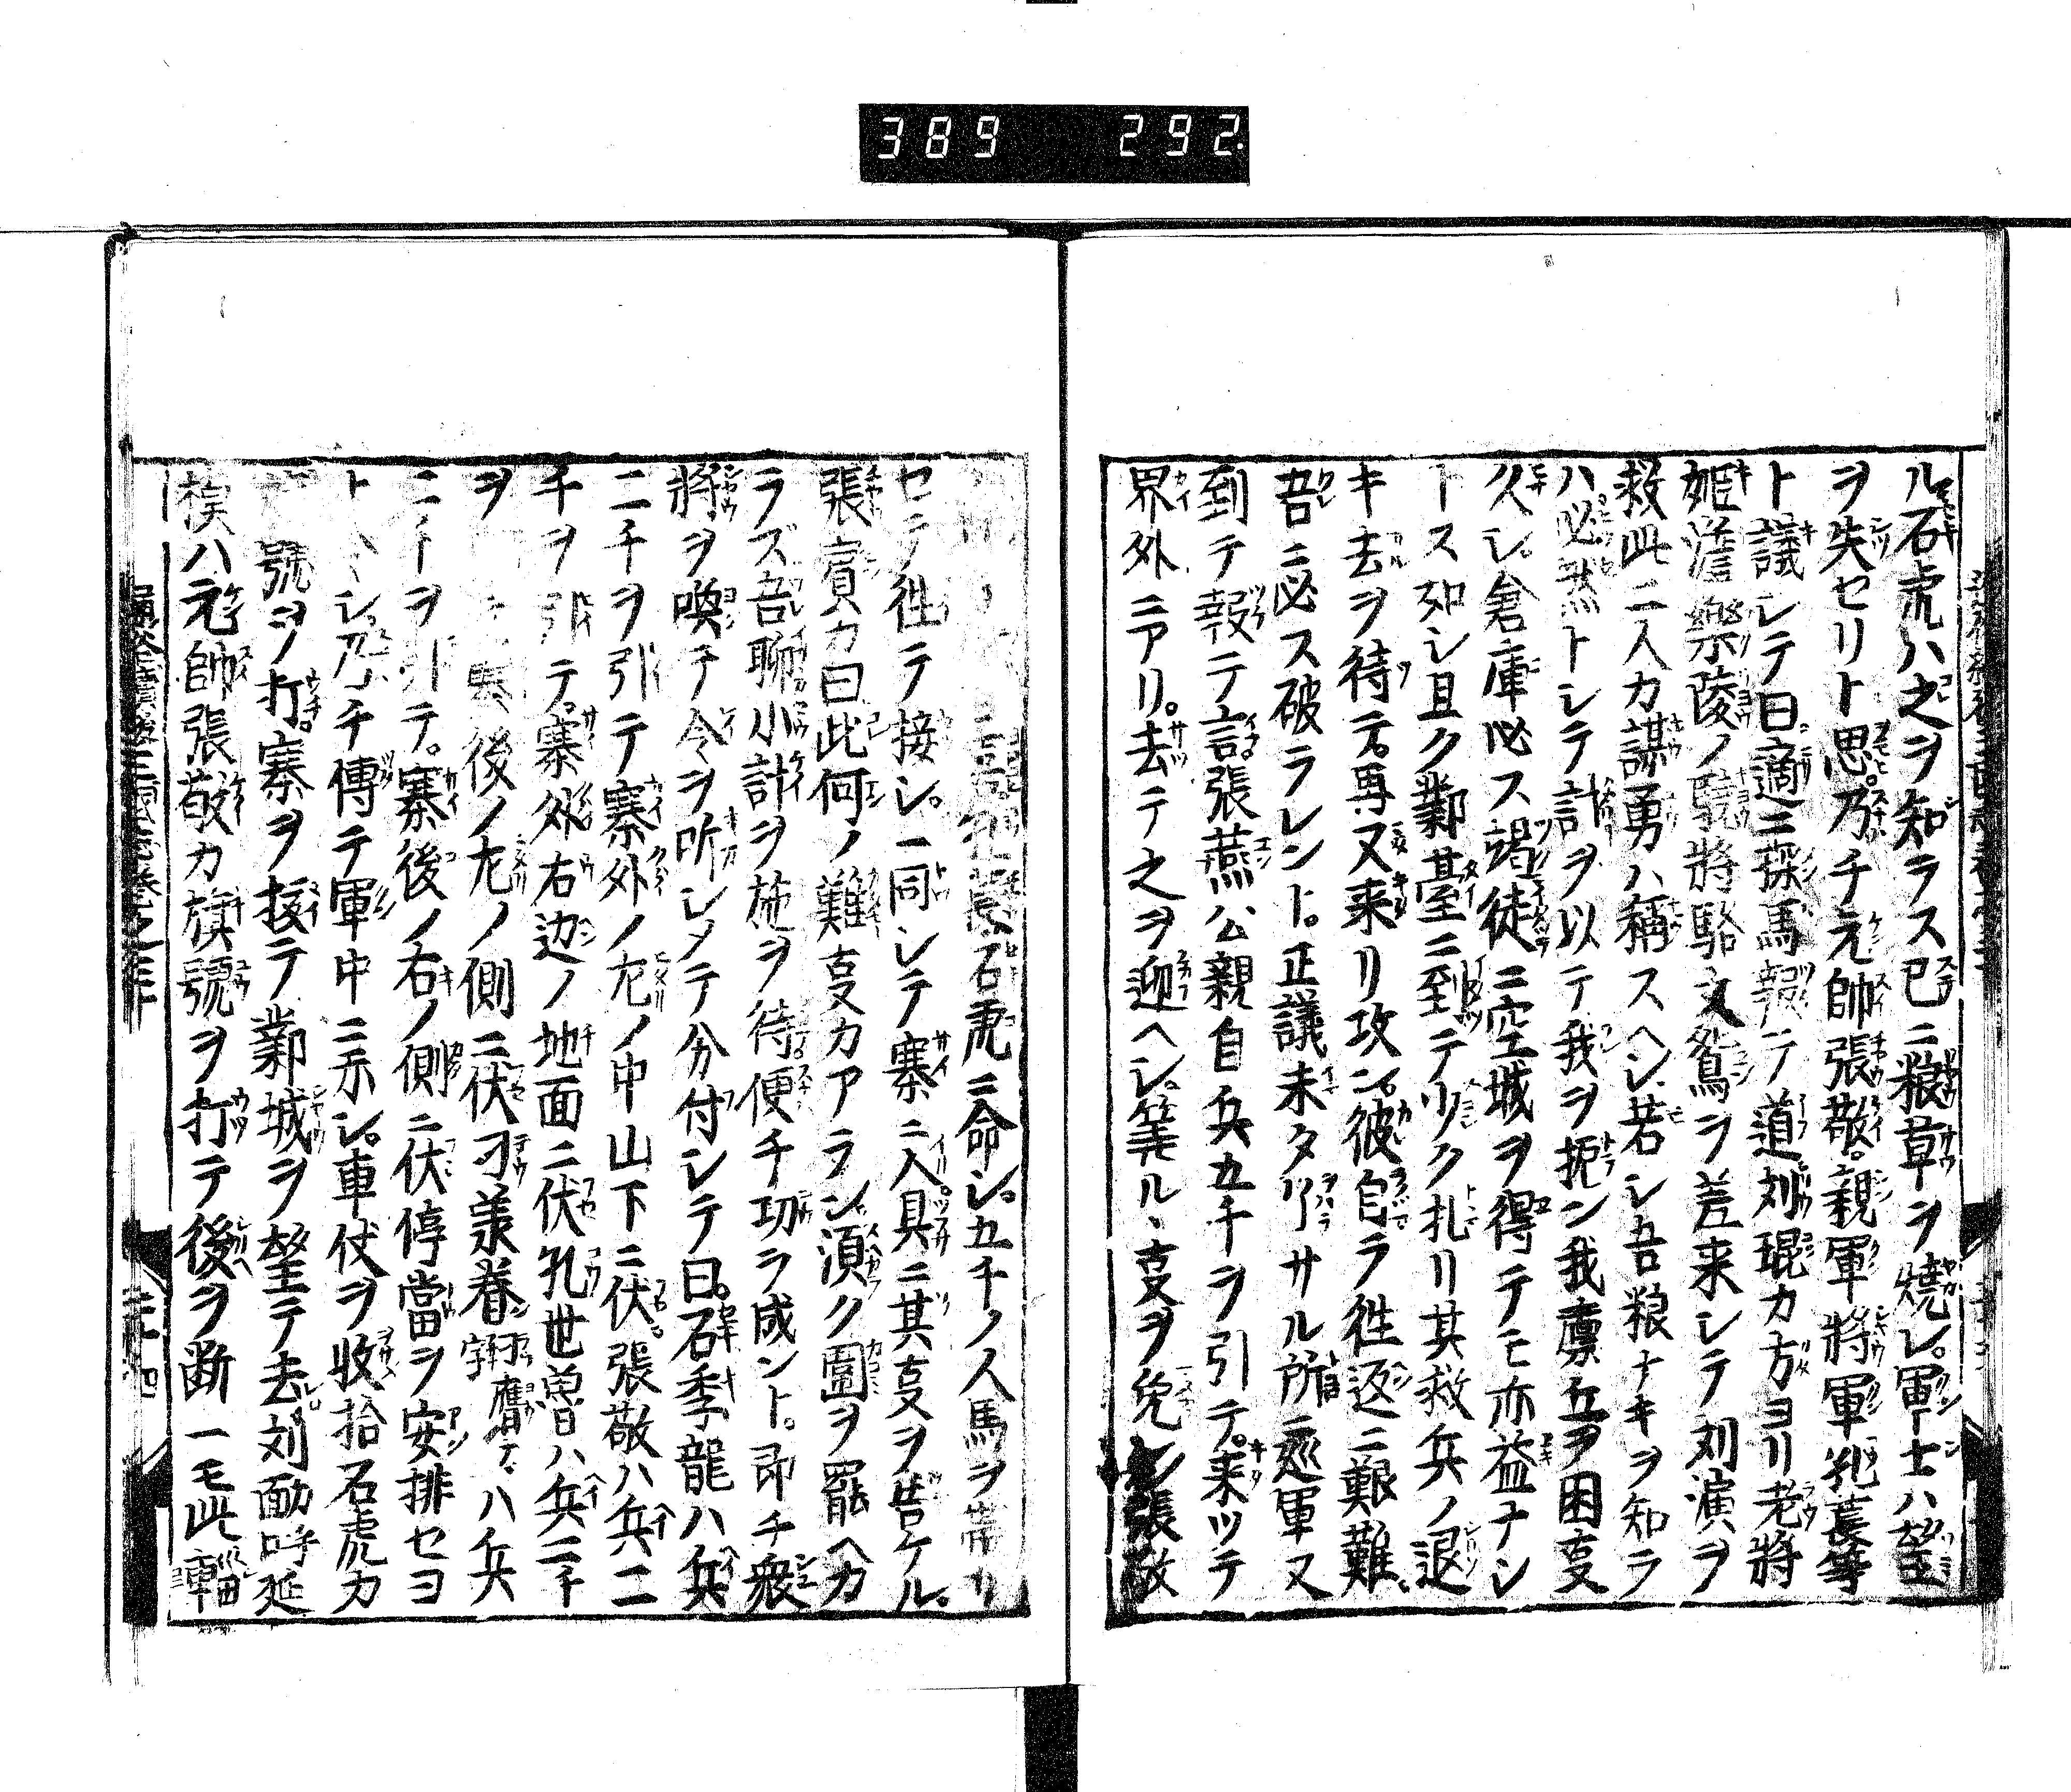 389 292.
ル石虎ハ之ヲ知ラス已ニ粮草ヲ燒レ。軍士ハ望
ヲ失セリト思。乃チ元帥張敬。親軍將軍孔萇等
ト議レテ曰適ニ探馬報テ道刘琨カ方ヨリ老將
姬澹樂陵ノ驍將駱文鴛ヲ差来シテ刘演ヲ
救此二人カ謀勇ハ稱スヘシ若シ吾粮ナキヲ知ラ
ハ必然トシテ計ヲ以テ我ヲ扼ン我禀兵ヲ困㕝
久シ。倉庫必ス竭徒ニ空城ヲ得テモ亦益ナシ
トス如シ且ク鄴臺ニ到テ少ク扎リ其救兵ノ退
キ去ヲ待テ。再又来リ攻ン。彼自ラ徃返ニ艱難
吾ニ必ス破ラレント。正議未タ了サル所ニ巡軍又
到テ報テ言。張燕公親自兵五千ヲ引テ。来ツテ
界外ニアリ。去テ之ヲ迎ヘシ。等ル丶㕝ヲ免シ張敬
孔萇石虎ニ命シ。五千ノ人馬ヲ帯リ
セテ徃テ接シ。一同レテ寨ニ入。具ニ其㕝ヲ告ケル。
張賓カ曰此何ノ難㕝カアラン須ク圍ヲ罷ヘカ
ラズ吾聊小計ヲ施ヲ待便チ功ヲ成ント。即チ衆
將ヲ喚テ令ヲ听シメテ分付シテ曰。石季龍ハ兵
二千ヲ引テ寨外ノ左ノ中山下ニ伏。張敬ハ兵二
千ヲ引テ。寨外右边ノ地面ニ伏孔世魯ハ兵二千
ヲ 寨後ノ左ノ側ニ伏刁羕眷ハ兵
二千ヲ引テ。寨後ノ右ノ側ニ伏停當ヲ安排セヨ
トシ。乃チ傳テ軍中ニ示シ。車仗ヲ收拾石虎カ
號ヲ打。寨ヲ拔テ鄴城ヲ望テ去刘勔呼延
模ハ元帥張敬カ旗號ヲ打テ後ヲ断一モ此輜